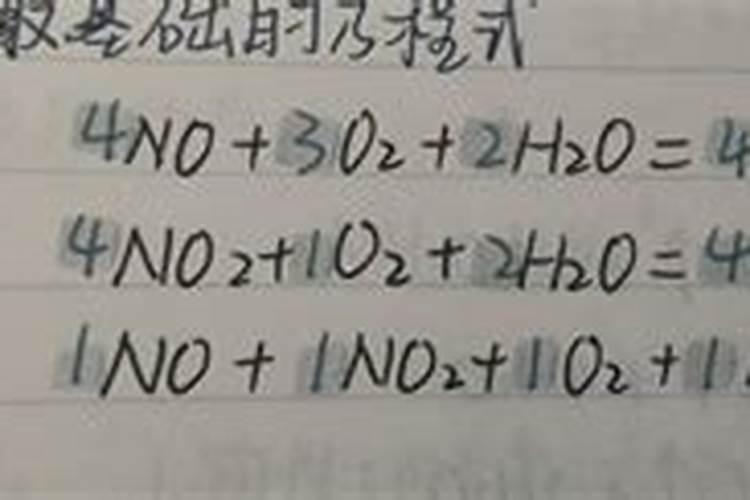 最基础的方程式
4NO+3O₂+2H₂O=4
4NO₂+1O₂+2H₂O=4
1NO+1NO₂+1O₂+1